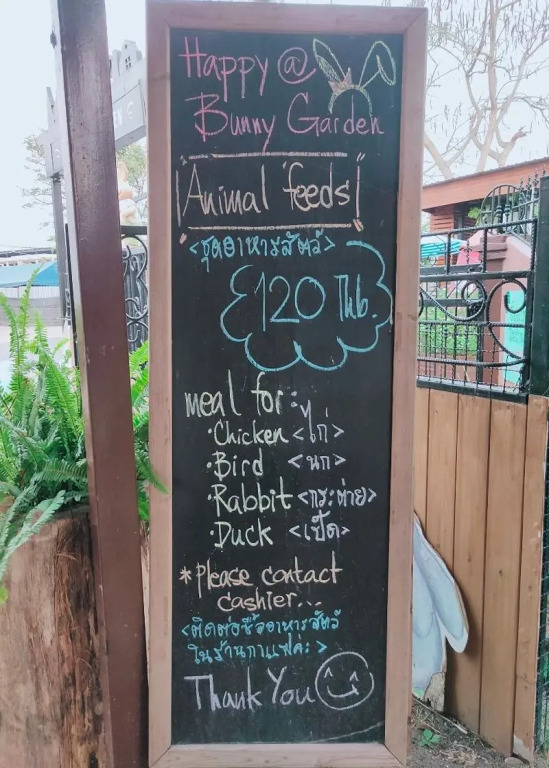 Happy @
Bunny Garden
Animal feeds
<ชุดอาหารสัตว์>
120 Thb.
meal for:
·Chicken <ไก่>
·Bird <นก>
·Rabbit <กระต่าย>
·Duck <เป็ด>
*please contact
cashier...
<ติดต่อซื้ออาหารสัตว์
ในร้านกาแฟค่ะ>
Thank You